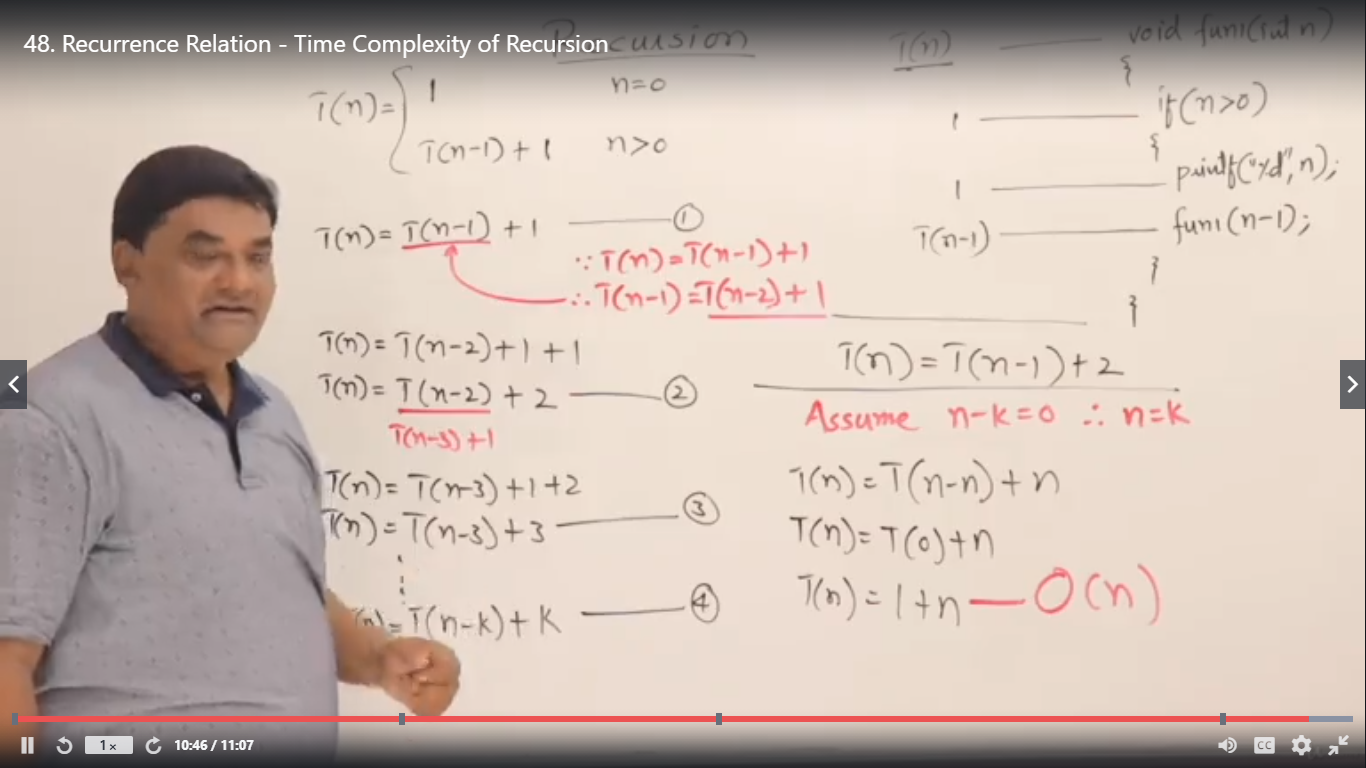 48. Recurrence Relation - Time Complexity of Recursion
Recursion
T(n)= { 1 n=0
T(n-1) + 1 n>0
T(n)= T(n-1) + 1 ——— ①
∵ T(n)=T(n-1)+1
∴ T(n-1)=T(n-2)+1
T(n)= T(n-2)+1+1
T(n)= T(n-2) + 2 ——— ②
T(n-3)+1
T(n)= T(n-3)+1+2
T(n)= T(n-3)+3 ——— ③
(n)=T(n-k)+k ——— ④
T(n) ——— void fun1(int n)
{
1 ——— if(n>0)
{
1 ——— printf("%d",n);
T(n-1) ——— fun1(n-1);
}
}
T(n)=T(n-1)+2
Assume n-k=0 ∴ n=k
T(n)=T(n-n)+n
T(n)=T(0)+n
T(n)=1+n — O(n)
1x
10:46 / 11:07
CC